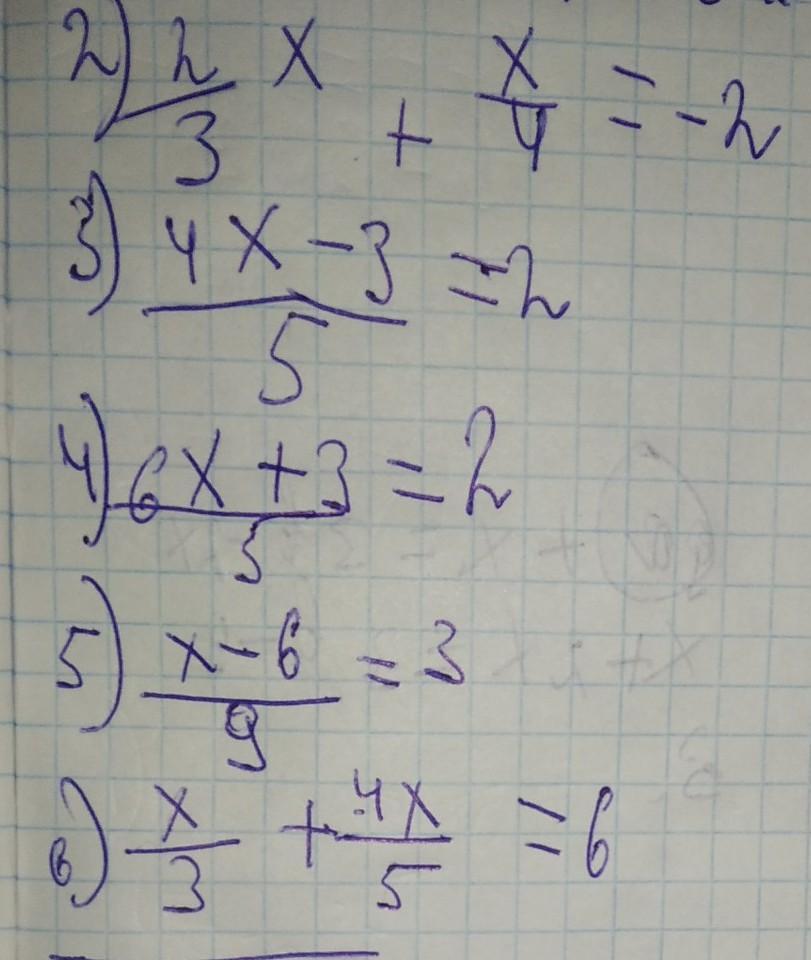 2) 2/3 x + x/4 = -2
3) (4x - 3)/5 = 2
4) (6x + 3)/5 = 2
5) (x - 6)/9 = 3
6) x/3 + 4x/5 = 6